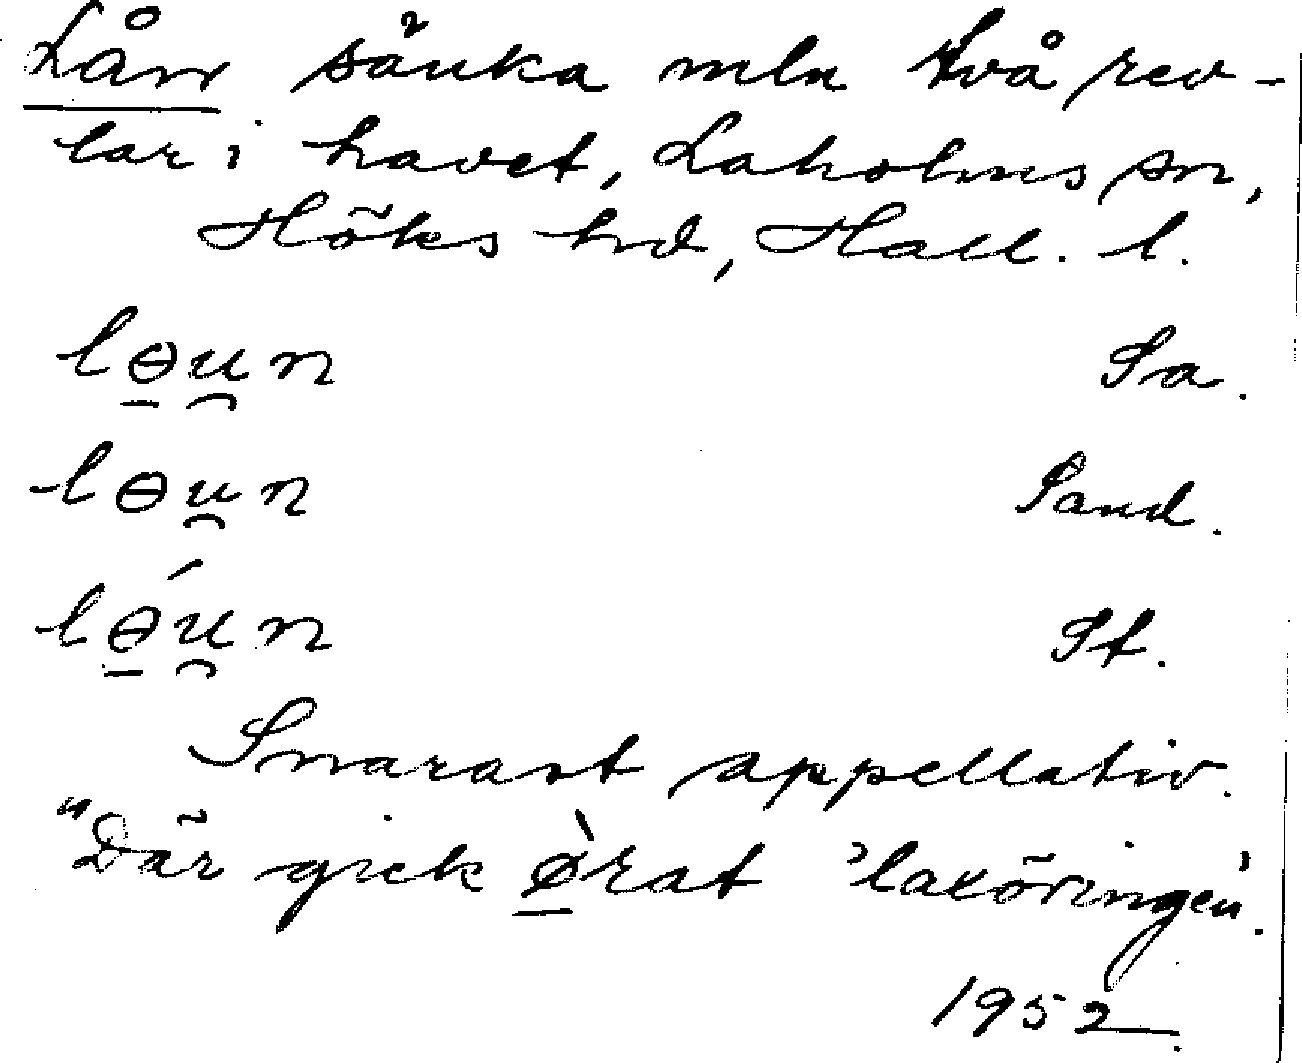 Lån sänka mln två rev-
lar i havet, Laholms sn,
Höks hd, Hall. l.
lɵ̠u̯n Sa.
lɵu̯n Sand.
lɵ̠́u̯n St.
Snarast appellativ.
"Där gick ø̠̀rat 'laxöringen'.
1952.